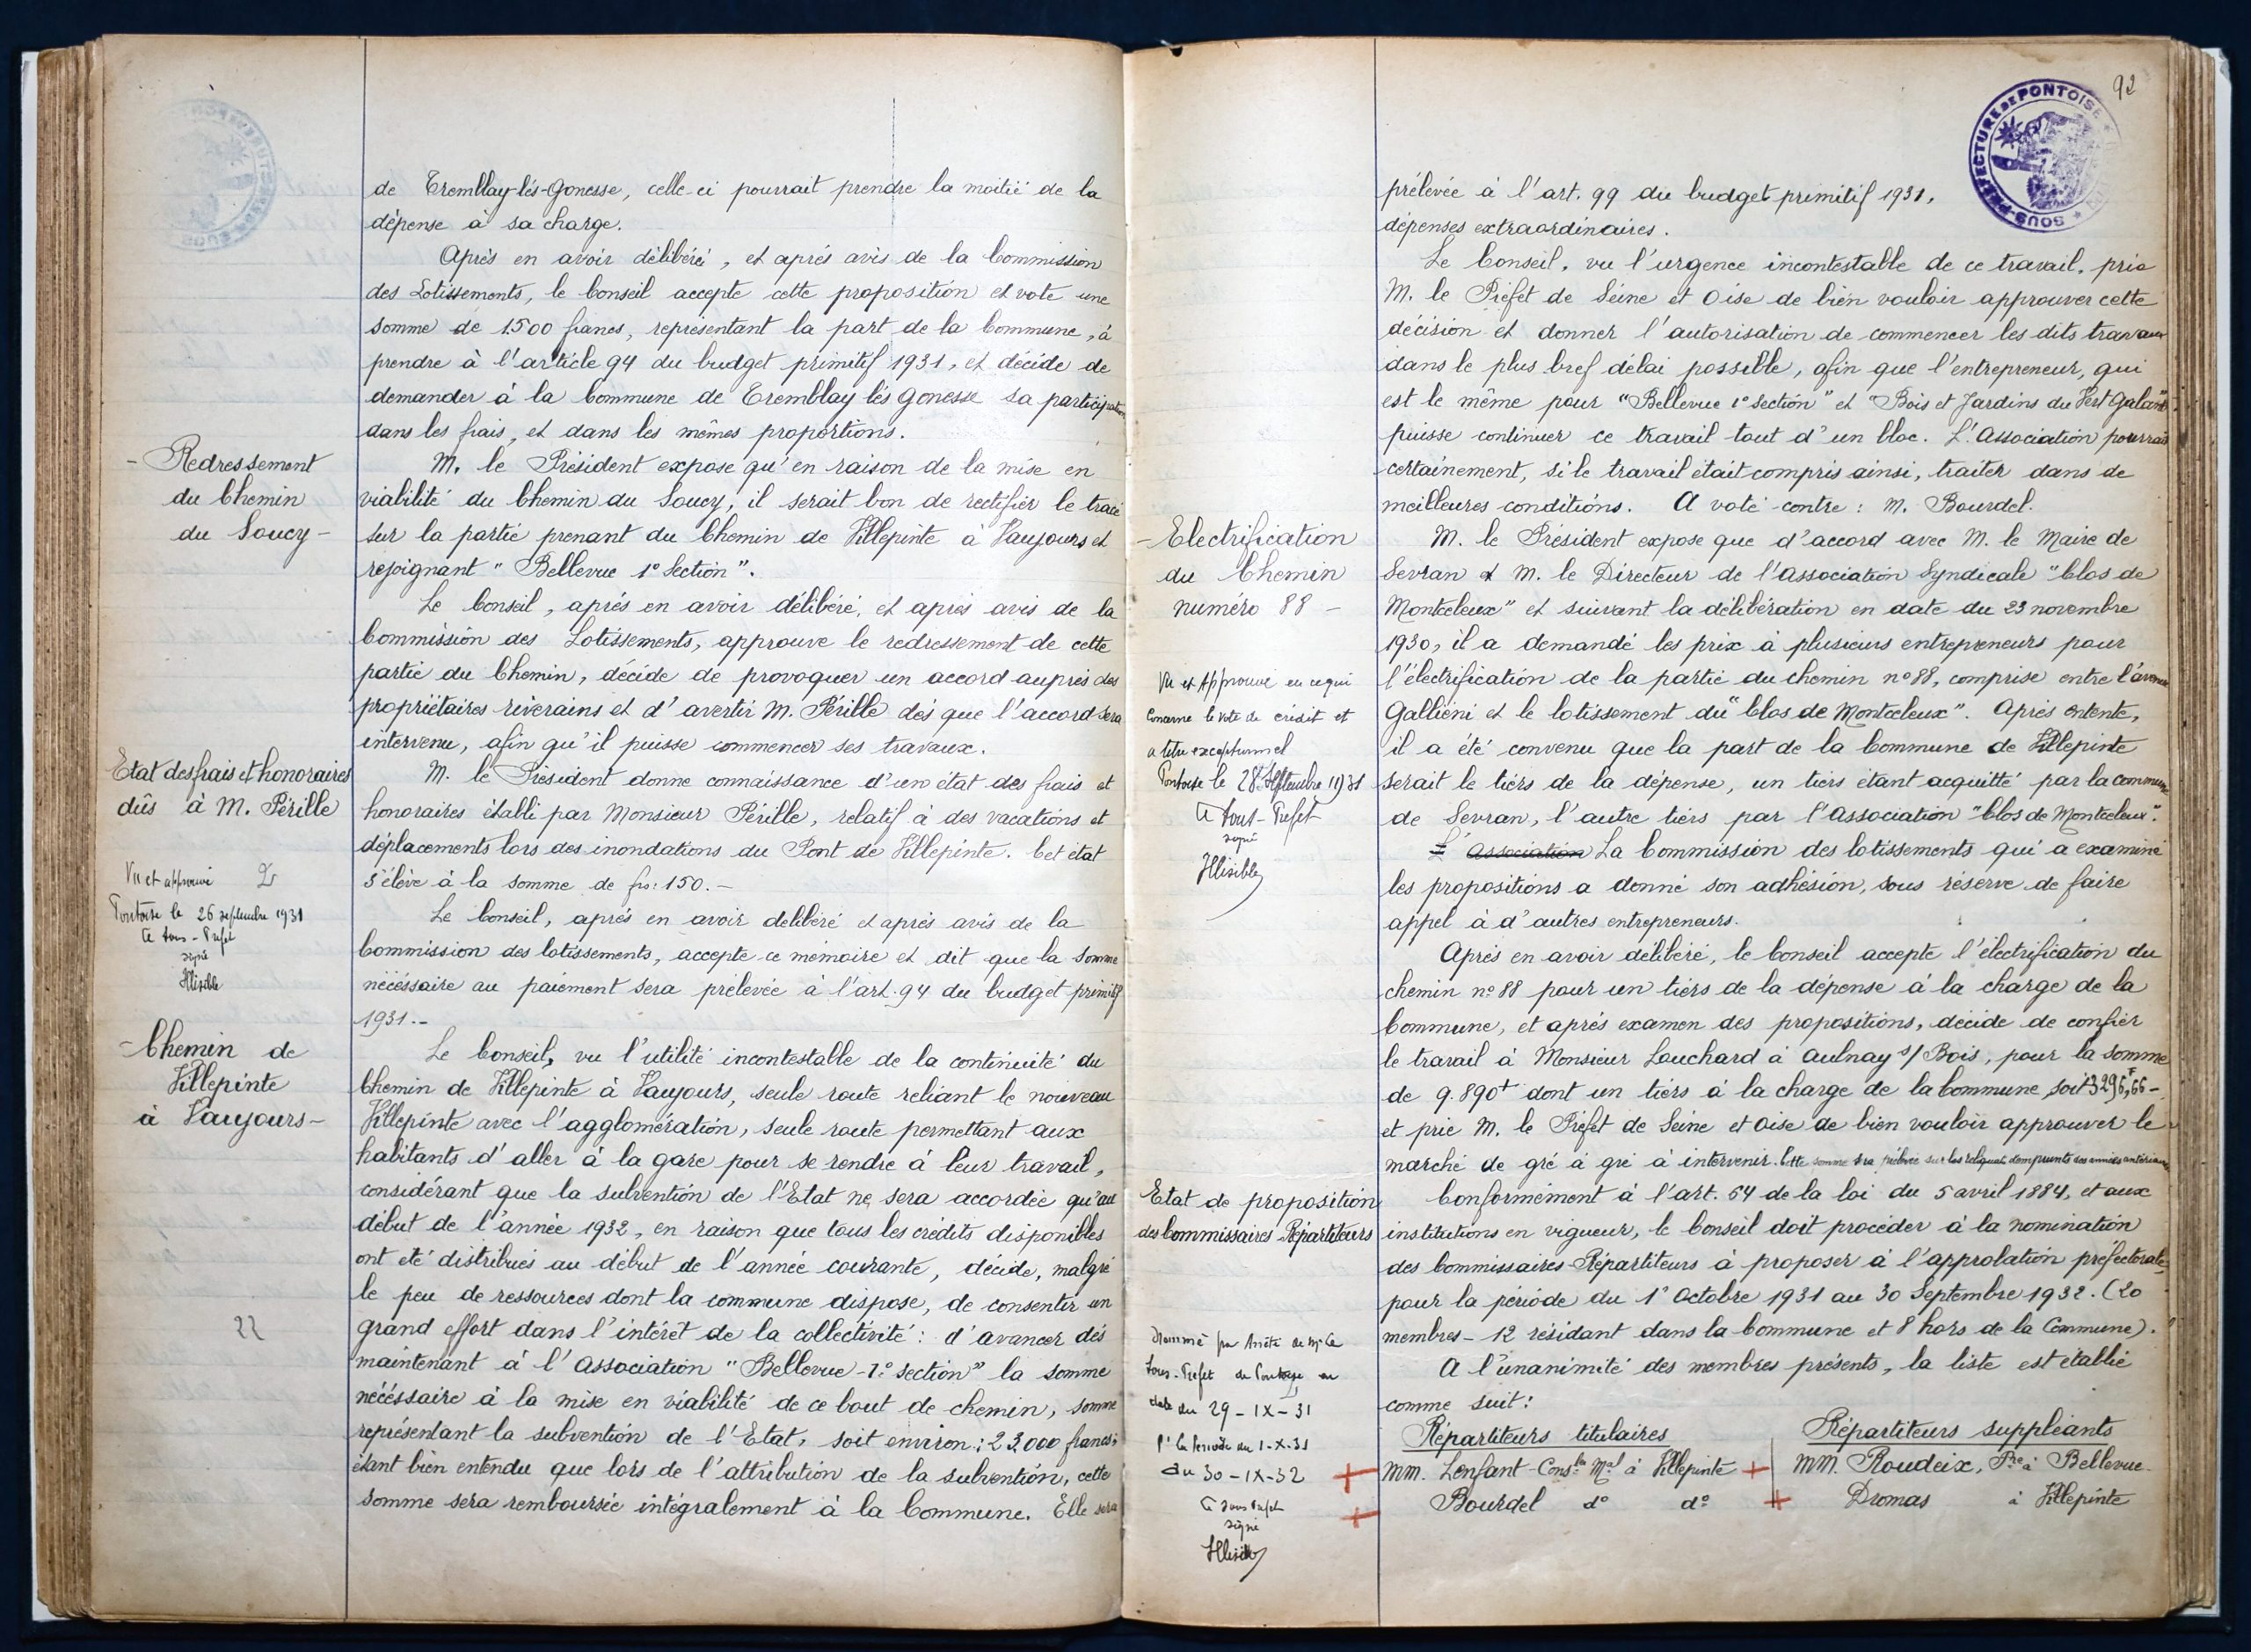 de Tremblay-lès-Gonesse, celle-ci pourrait prendre la moitié de la
dépense à sa charge.
Après en avoir délibéré, et après avis de la Commission
des Lotissements, le Conseil accepte cette proposition et vote une
somme de 1.500 francs, représentant la part de la Commune, à
prendre à l'article 94 du budget primitif 1931, et décide de
demander à la Commune de Tremblay lès Gonesse sa participation
dans les frais, et dans les mêmes proportions.
- Redressement
du Chemin
du Soucy -
M. le Président expose qu'en raison de la mise en
viabilité du Chemin du Soucy, il serait bon de rectifier le tracé
sur la partie prenant du Chemin de Villepinte à Vaujours et
rejoignant "Bellevue 1° Section".
Le Conseil, après en avoir délibéré, et après avis de la
Commission des Lotissements, approuve le redressement de cette
partie du Chemin, décide de provoquer un accord auprès des
propriétaires riverains et d'avertir M. Pérille dès que l'accord sera
intervenu, afin qu'il puisse commencer ses travaux.
Etat des frais et honoraires
dûs à M. Pérille
Vu et approuvé
Pontoise le 26 septembre 1931
Le Sous-Préfet
signé
Illisible
M. le Président donne connaissance d'un état des frais et
honoraires établi par Monsieur Pérille, relatif à des vacations et
déplacements lors des inondations du Pont de Villepinte. Cet état
s'élève à la somme de frs: 150.-
Le Conseil, après en avoir délibéré et après avis de la
Commission des lotissements, accepte ce mémoire et dit que la somme
nécéssaire au paiement sera prélevée à l'art. 94 du budget primitif
1931.-
- Chemin de
Villepinte
à Vaujours -
22
Le Conseil, vu l'utilité incontestable de la continuité du
Chemin de Villepinte à Vaujours, seule route reliant le nouveau
Villepinte avec l'agglomération, seule route permettant aux
habitants d'aller à la gare pour se rendre à leur travail,
considérant que la subvention de l'Etat ne sera accordée qu'au
début de l'année 1932, en raison que tous les crédits disponibles
ont été distribués au début de l'année courante, décide, malgré
le peu de ressources dont la commune dispose, de consentir un
grand effort dans l'intérêt de la collectivité : d'avancer dès
maintenant à l'Association "Bellevue - 1° section" la somme
nécéssaire à la mise en viabilité de ce bout de chemin, somme
représentant la subvention de l'Etat, soit environ : 23.000 francs;
étant bien entendu que lors de l'attribution de la subvention, cette
somme sera remboursée intégralement à la Commune. Elle sera
92
SOUS-PREFECTURE DE PONTOISE
prélevée à l'art. 99 du budget primitif 1931,
dépenses extraordinaires.
Le Conseil, vu l'urgence incontestable de ce travail, prie
M. le Préfet de Seine et Oise de bien vouloir approuver cette
décision et donner l'autorisation de commencer les dits travaux
dans le plus bref délai possible, afin que l'entrepreneur, qui
est le même pour "Bellevue 1° Section" et "Bois et Jardins du Vert Galant"
puisse continuer ce travail tout d'un bloc. L'Association pourrait
certainement, si le travail était compris ainsi, traiter dans de
meilleures conditions. A voté contre : M. Bourdel.
- Electrification
du Chemin
numéro 88 -
Vu et Approuvé en ce qui
concerne le vote de crédit et
à titre exceptionnel
Pontoise le 28 Septembre 1931
Le Sous-Préfet
signé
Illisible
M. le Président expose que d'accord avec M. le Maire de
Sevran et M. le Directeur de l'Association Syndicale "Clos de
Montceleux" et suivant la délibération en date du 23 novembre
1930, il a demandé les prix à plusieurs entrepreneurs pour
l'électrification de la partie du chemin n° 88, comprise entre l'avenue
Galliéni et le lotissement du "Clos de Montceleux". Après entente,
il a été convenu que la part de la Commune de Villepinte
serait le tiers de la dépense, un tiers étant acquitté par la commune
de Sevran, l'autre tiers par l'Association "Clos de Montceleux".
L'Association La Commission des lotissements qui a examiné
les propositions a donné son adhésion, sous réserve de faire
appel à d'autres entrepreneurs.
Après en avoir délibéré, le Conseil accepte l'électrification du
chemin n° 88 pour un tiers de la dépense à la charge de la
Commune, et après examen des propositions, décide de confier
le travail à Monsieur Louchard à Aulnay s/ Bois, pour la somme
de 9.890f dont un tiers à la charge de la Commune soit 3296F,66 -
et prie M. le Préfet de Seine et Oise de bien vouloir approuver le
marché de gré à gré à intervenir. Cette somme sera prélevée sur les reliquats d'emprunts des années antérieures
Etat de proposition
des Commissaires Répartiteurs
Nommé par Arrêté de Mr le
Sous-Préfet de Pontoise en
date du 29-IX-31
pr la période du 1-X-31
au 30-IX-32
Le Sous Préfet
signé
Illisible
Conformément à l'art. 64 de la loi du 5 avril 1884, et aux
institutions en vigueur, le Conseil doit procéder à la nomination
des Commissaires-Répartiteurs à proposer à l'approbation préfectorale,
pour la période du 1° Octobre 1931 au 30 Septembre 1932. (20
membres - 12 résidant dans la Commune et 8 hors de la Commune).
A l'unanimité des membres présents, la liste est établie
comme suit :
Répartiteurs titulaires Répartiteurs suppléants
+ MM. Lenfant Conser Mal à Villepinte + MM. Roudeix, Pre à Bellevue
+ Bourdel d° d° + Dromas à Villepinte